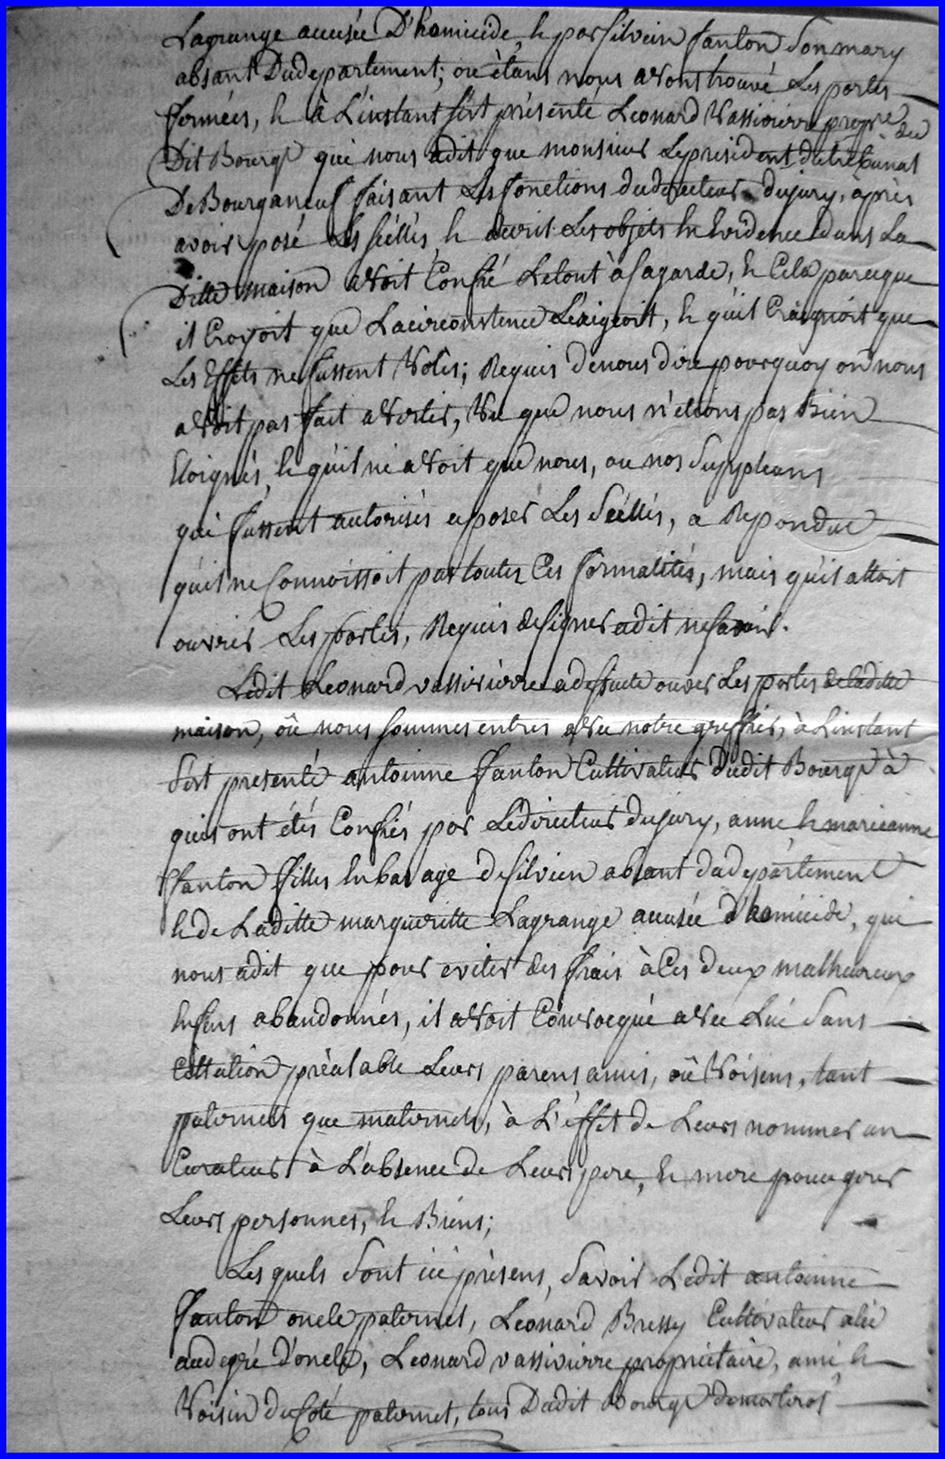 Lagrange accusée D'homicide, & par Silvain fanton Son mary
absant Dudepartement; ou ètans nous avons trouvé Les portes
fermées, & à L'instant s'ést présente Leonard Vassivierre propre du
Dit Bourg qui nous adit que monsieur Le president du tribunal
De Bourganeuf faisant Les fonctions dudirecteur dujury, après
avoir posé Les scéllés, & decrit Les objets En Evidence dans La
Ditte maison avoit Confié Letout à sagarde, & Cela parceque
il Croyoit que Lacirconstence L'exigeoit, & qu'il Craignoit que
Les Effets ne fussent Volés; Requis denous dire pourquoy on nous
avoit pas fait avertir, Vu que nous n'etions pas Bien
Eloignés, & qu'il ni avoit que nous, ou nos Suppleans
qui fussent autorisés aposer Les Scéllés, a Repondue
qu'il ne Connoissoit pas toutes Ces formalités, mais qu'il alloit
ouvrir Les portes, Requis designer adit ne savoir.
Ledit Leonard vassivierre adeffaite ouver Les portes de laditte
maison, où nous sommes entres avec notre greffier, à Linstant
s'est presenté antoinne fanton Cultivateur Dudit Bourg à
qui ont étés Confiés par Ledirecteur dujury, anne & marieanne
fanton filles En bas age de silvain absant dudepartement
& de Laditte margueritte Lagrange accusée d'homicide, qui
nous adit que pour eviter des frais à Ces deux malheureux
Enfans abandonnés, il avoit Convocqué avec Lui Sans
Cittation préalable Leurs parens amis, où Voisins, tant
paternels que maternels, à L'effet de Leurs nommer un
Curateur à L'absence de Leurs pere, & mere pour gerer
Leurs personnes, & Biens;
Les quels sont ici présens, Savoir Ledit antoinne
fanton oncle paternel, Leonard Bressy Cultivateur alié
audegré D'oncle, Leonard vassivierre propriétaire, ami &
Voisin du Coté paternel, tous Dudit Bourg